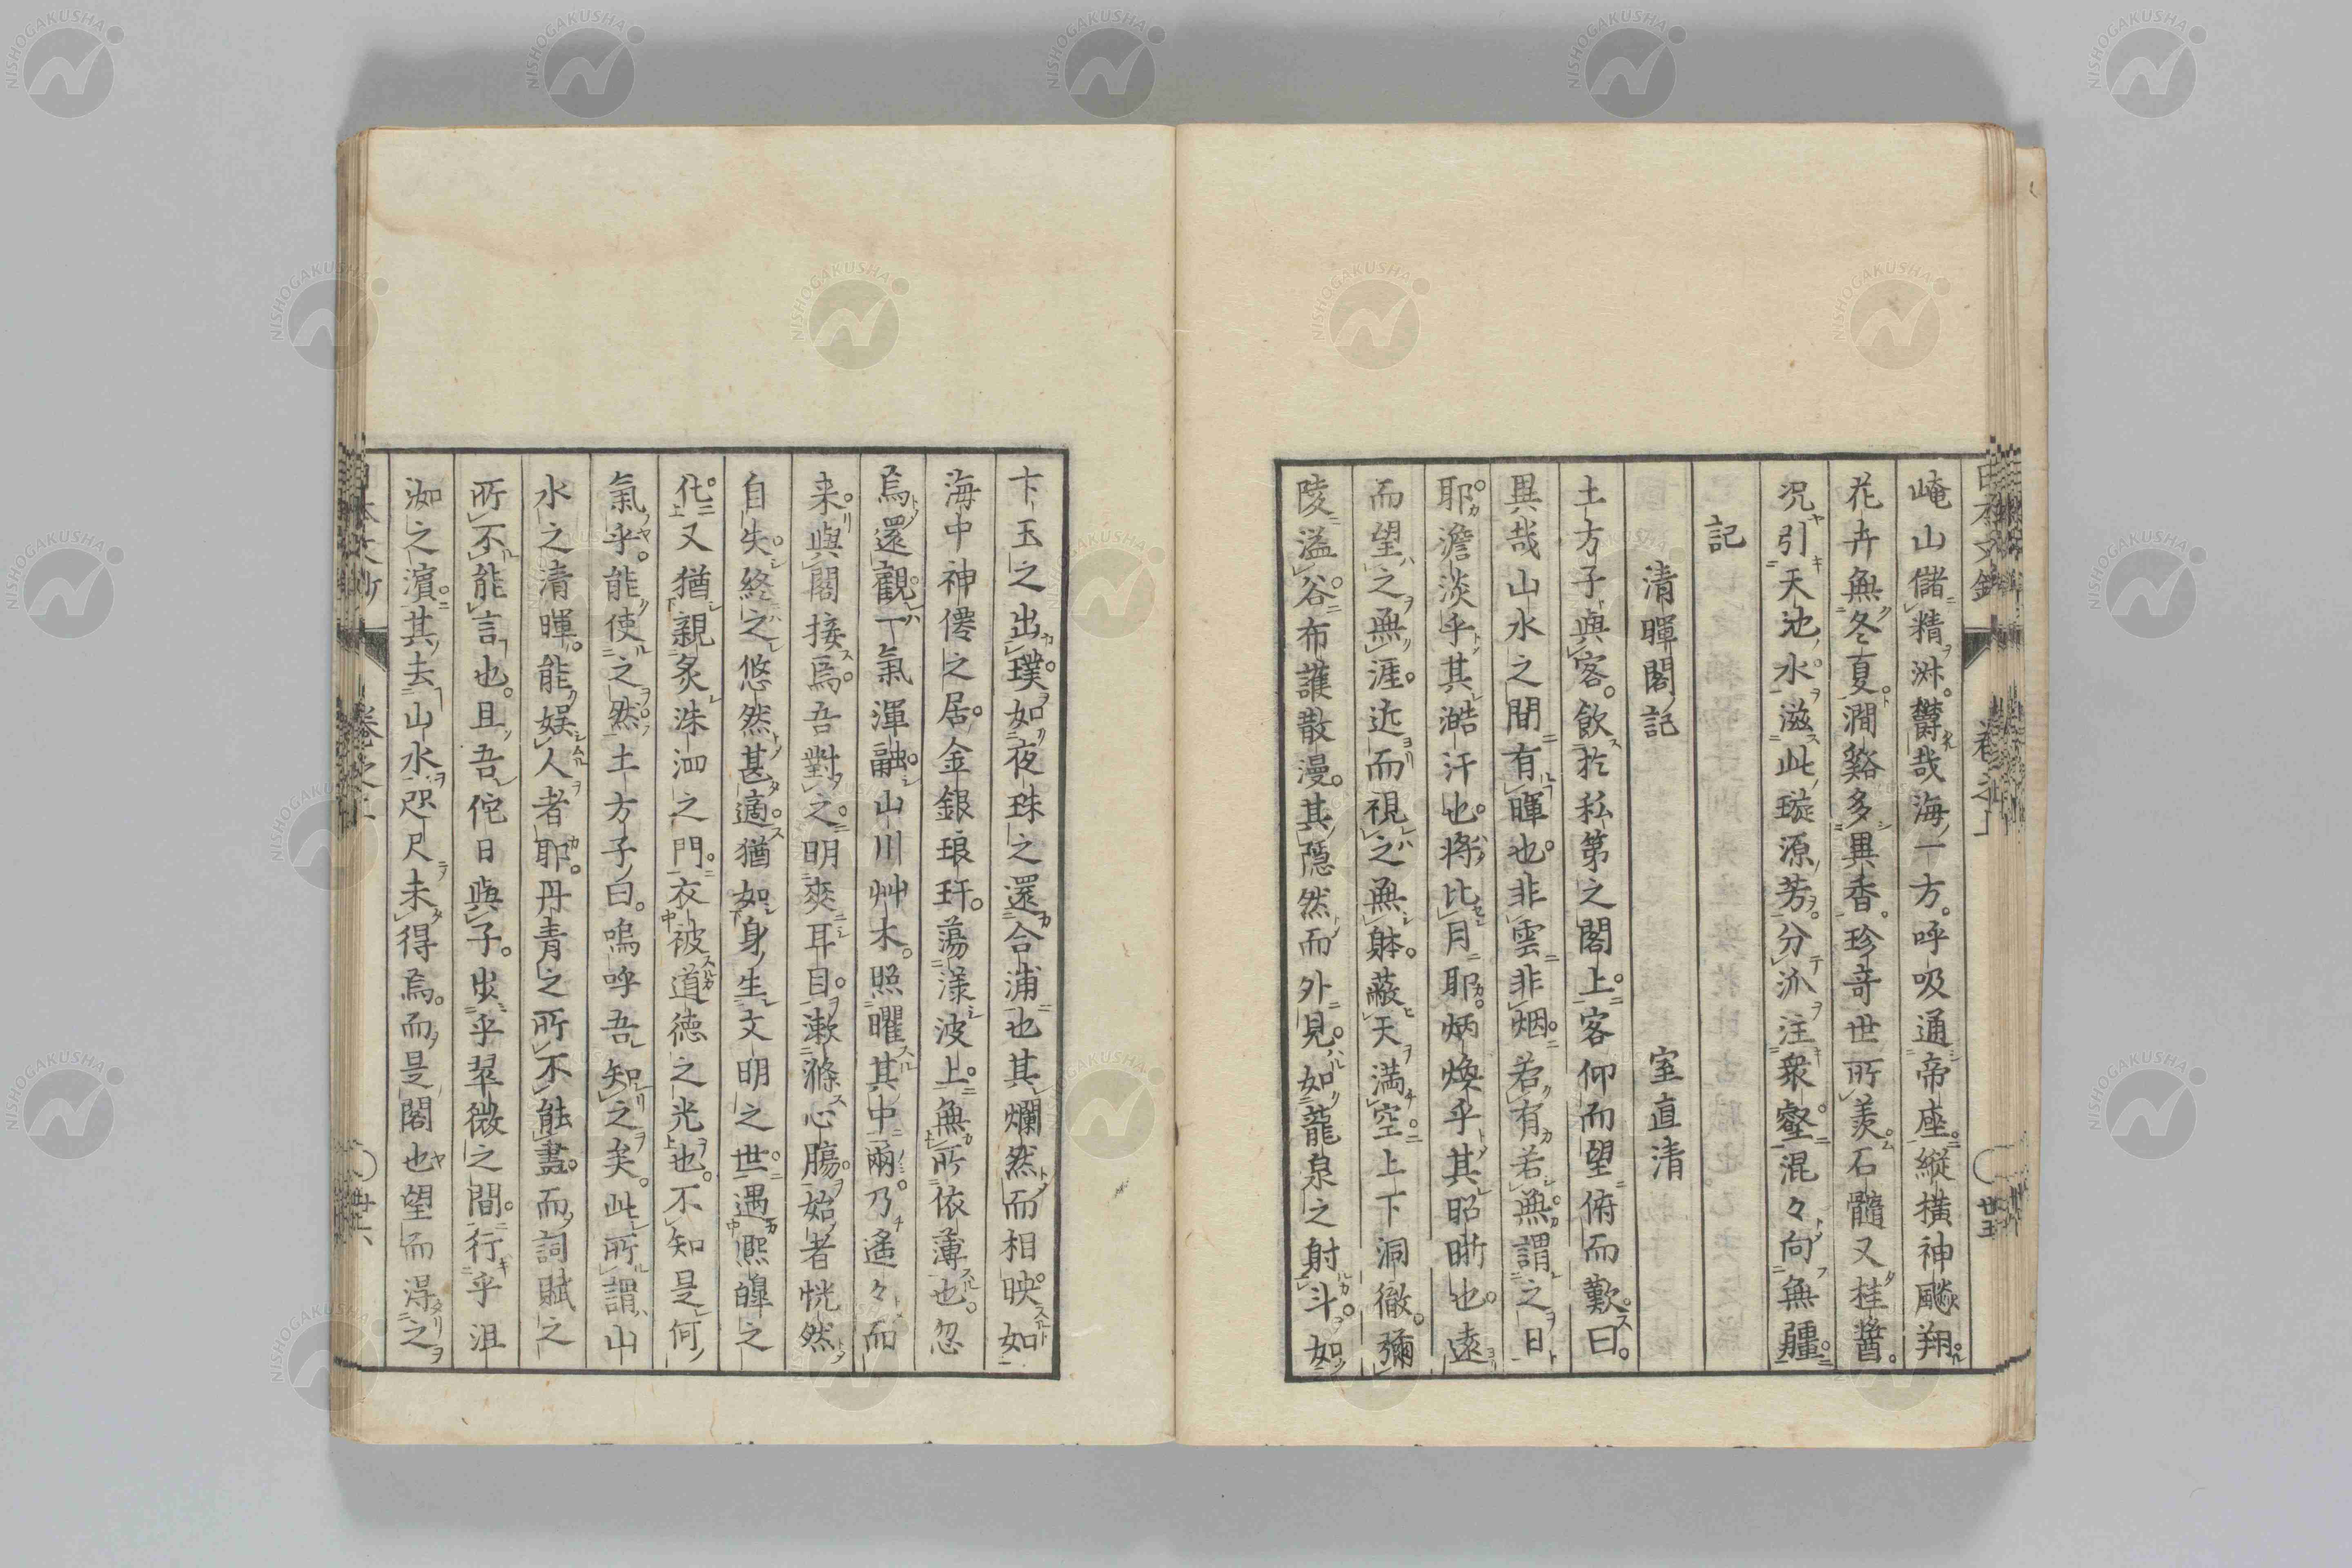 崦山儲精淋。欝哉海一方。呼吸通帝座。縦横神飈翔。
花卉無冬夏。澗谿多異香。珍奇世所羨。石髓又桂醬。
况引天池水。滋此璇源芳。分派注衆壑。混々向無疆。
記
清暉閣記 室直清
土方子與客。飲於私第之閣上。客仰而望俯而歎。曰。
異哉山水之間有暉也。非雲非烟。若有若無。謂之日
耶。澹淡乎其澔汗也。將比月耶。炳煥乎其昭晰也。遠
而望之無涯。近而視之無躰。蔽天満空。上下洞徹。彌
陵溢谷。布護散漫。其隱然而外見。如龍泉之射斗。如
卞玉之出璞。如夜珠之還合浦也其爛然而相映。如
海中神僊之居。金銀琅玕。蕩漾波上。無所依薄也。忽
焉還觀。一氣渾融。山川艸木。照曜其中兩。乃遙々而
来。與閣接焉。吾對之。明爽耳目。漱滌心膓。始者恍然
自失。終之悠然甚適。猶如身生文明之世。遇熈皥之
化。又猶親炙洙泗之門。衣被道德之光也。不知是何
氣乎。能使之然。土方子曰。嗚呼吾知之矣。此所謂山
水之清暉。能娯人者耶。丹青之所不能畫。而詞賦之
所不能言也。且吾佗日與子。出乎翠微之間。行乎沮
洳之濱。其去山水咫尺未得焉。而是閣也望而得之
日本文鈔 卷之上 廿五
NISHOGAKUSHA